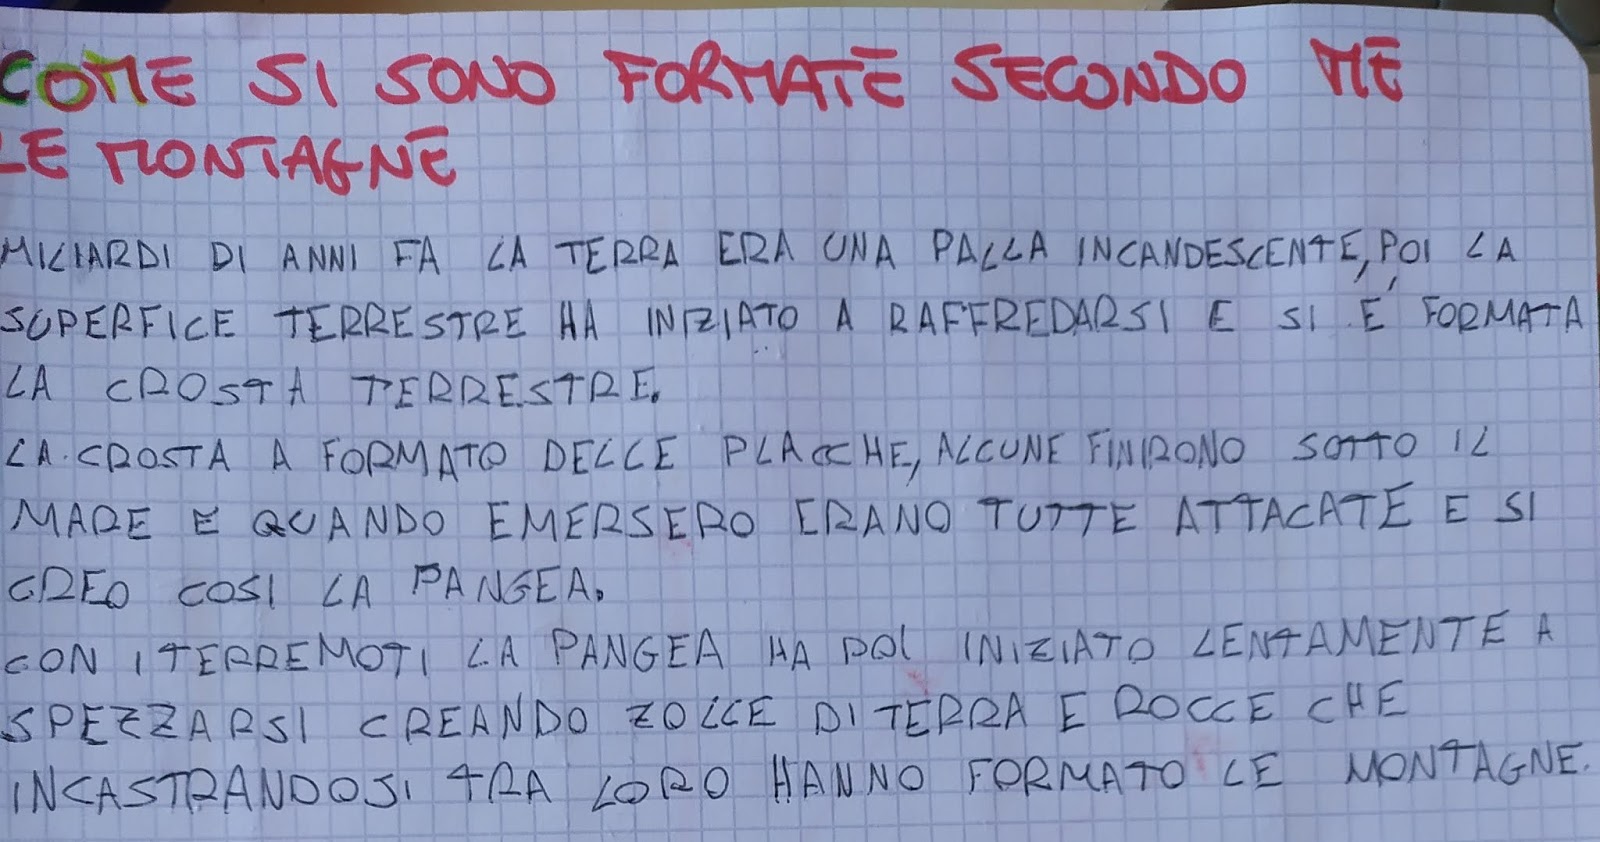 COME SI SONO FORMATE SECONDO ME
LE MONTAGNE
MILIARDI DI ANNI FA LA TERRA ERA UNA PALLA INCANDESCENTE, POI LA
SUPERFICE TERRESTRE HA INIZIATO A RAFFREDARSI E SI É FORMATA
LA CROSTA TERRESTRE.
LA CROSTA A FORMATO DELLE PLACCHE, ALCUNE FINIRONO SOTTO IL
MARE E QUANDO EMERSERO ERANO TUTTE ATTACATE E SI
CREO COSI LA PANGEA.
CON I TERREMOTI LA PANGEA HA POI INIZIATO LENTAMENTE A
SPEZZARSI CREANDO ZOLLE DI TERRA E ROCCE CHE
INCASTRANDOSI TRA LORO HANNO FORMATO LE MONTAGNE.